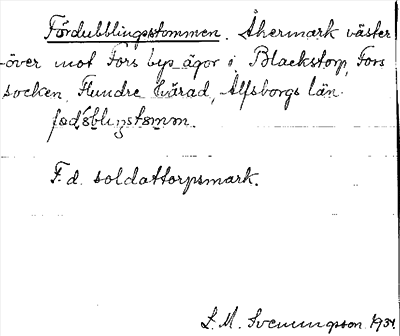 Fördubblingstommen. Åkermark väster
över mot Fors bys ägor i Blackstorp, Fors
socken, Flundre härad, Älfsborgs län.

F. d. soldattorpsmark.
L. M. Svenungsson 1934.